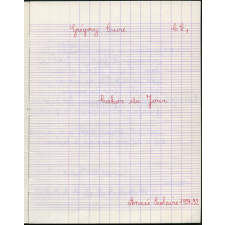 Grégory Cuire CE1
Cahier du Jour
Année Scolaire